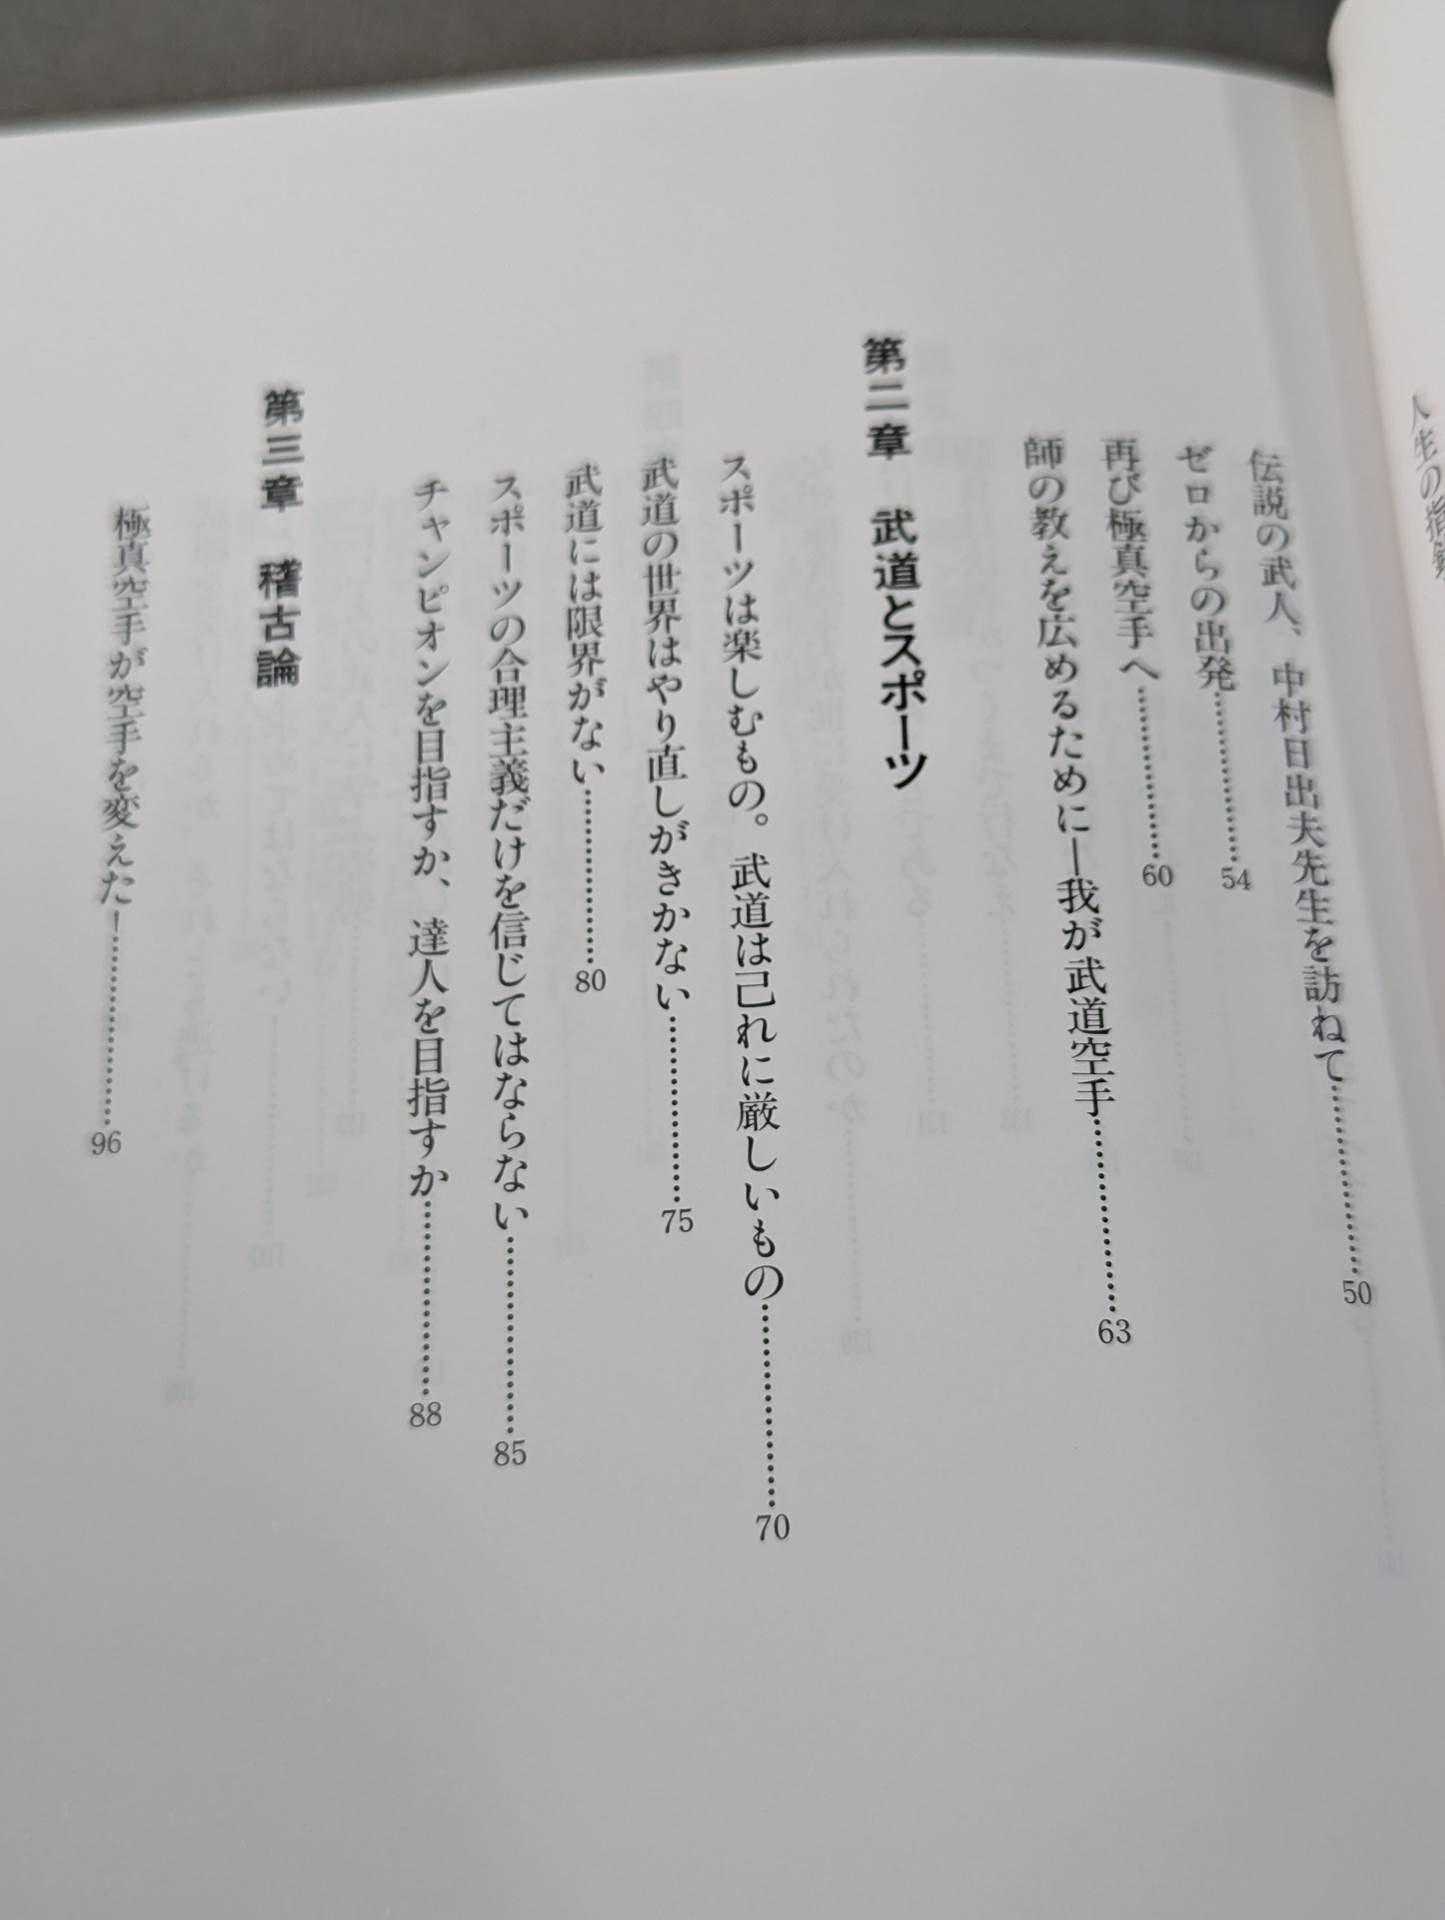 人生の指
伝説の武人、中村日出夫先生を訪ねて…………50
ゼロからの出発…………54
再び極真空手へ…………60
師の教えを広めるために―我が武道空手…………63
第二章　武道とスポーツ
スポーツは楽しむもの。武道は己れに厳しいもの…………70
武道の世界はやり直しがきかない…………75
武道には限界がない…………80
スポーツの合理主義だけを信じてはならない…………85
チャンピオンを目指すか、達人を目指すか…………88
第三章　稽古論
極真空手が空手を変えた！…………96